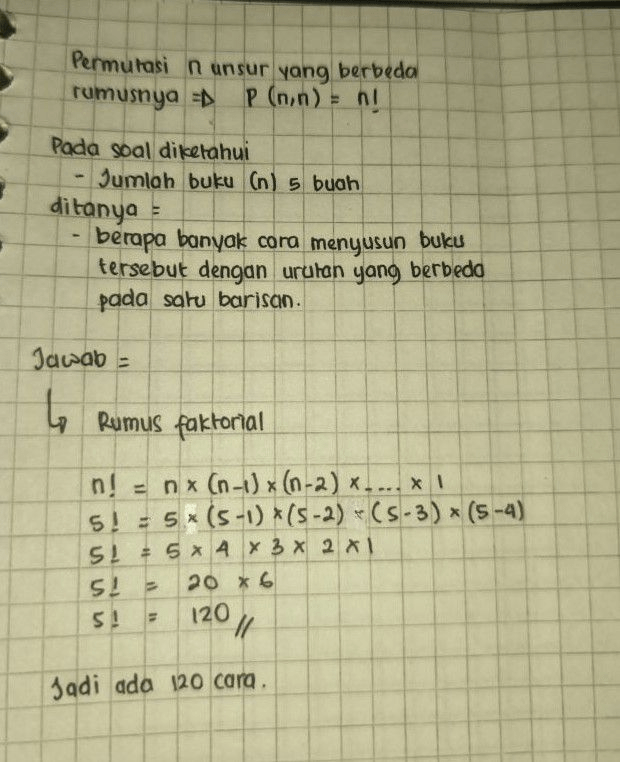 Permutasi n unsur yang berbeda
rumusnya => P (n,n) = n!
Pada soal diketahui
- Jumlah buku (n) 5 buah
ditanya =
- berapa banyak cara menyusun buku
tersebut dengan urutan yang berbeda
pada satu barisan.
Jawab =
↳ Rumus faktorial
n! = n × (n-1) × (n-2) × .... × 1
5! = 5 × (5-1) × (5-2) × (5-3) × (5-4)
5! = 5 × 4 × 3 × 2 × 1
5! = 20 × 6
5! = 120 //
Jadi ada 120 cara.